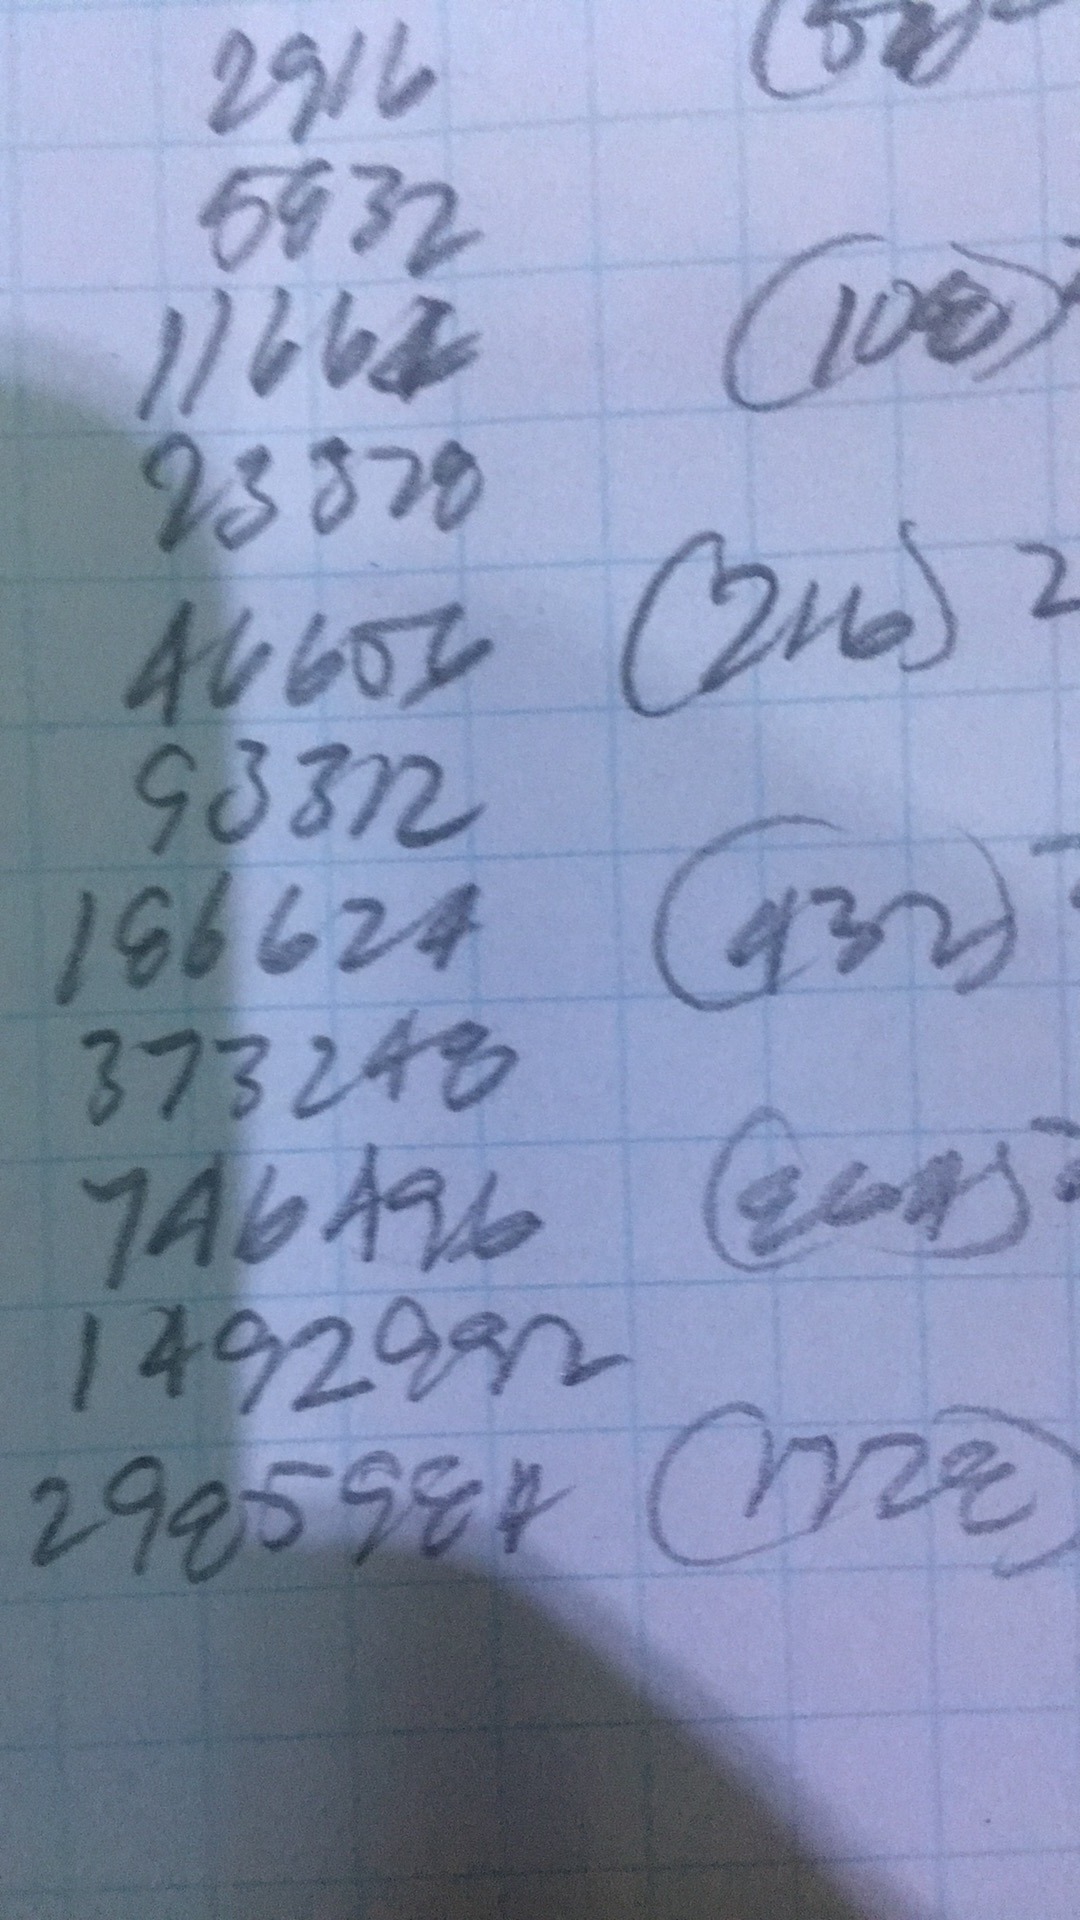 2916 (54)
5832
11664 (108)
23328
46656 (216) 2
93312
186624 (432)
373248
746496 (864)
1492992
2985984 (1728)